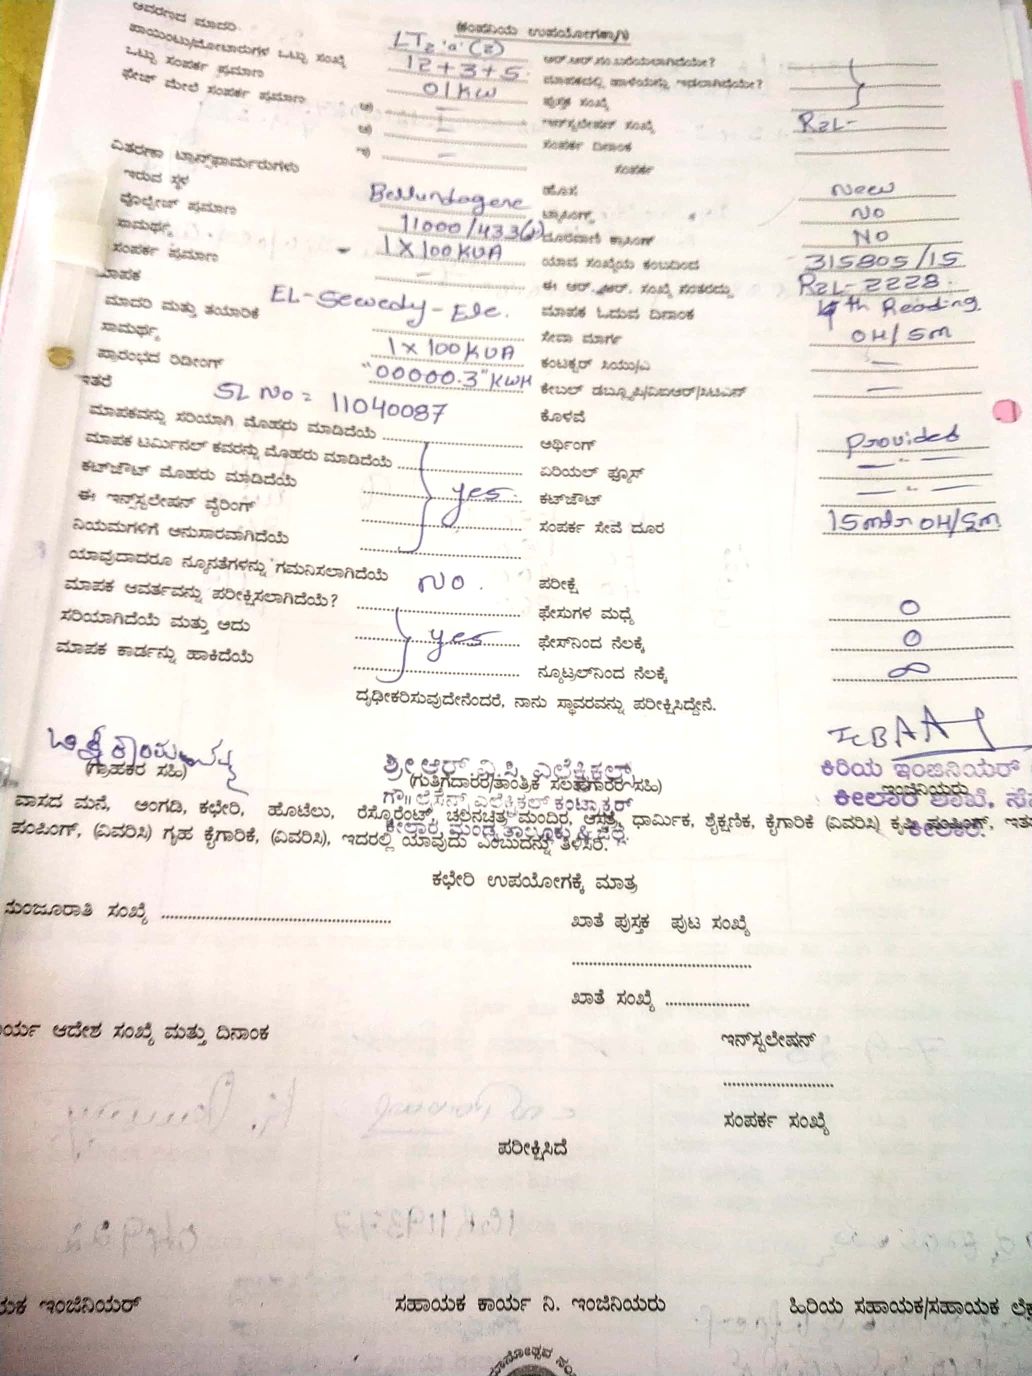 ಆವರಣದ ಮಾದರಿ (ಕಂಪನಿಯ ಉಪಯೋಗಕ್ಕಾಗಿ)
LT2 'a' (2)
ಪಾಯಿಂಟು/ಮೋಟಾರುಗಳ ಒಟ್ಟು ಸಂಖ್ಯೆ 12+3+5 ಆರ್.ಆರ್.ನಂ.ಬರೆಯಲಾಗಿದೆಯೇ?
ಒಟ್ಟು ಸಂಪರ್ಕ ಪ್ರಮಾಣ 01 KW ಮಾಪಕದಲ್ಲಿ ಹಾಳೆಯನ್ನು ಇಡಲಾಗಿದೆಯೇ?
ಫೇಜ್ ಮೇಲೆ ಸಂಪರ್ಕ ಪ್ರಮಾಣ ಪುಸ್ತಕ ಸಂಖ್ಯೆ
ಇನ್‌ಸ್ಟಲೇಷನ್ ಸಂಖ್ಯೆ R2L-
ಸಂಪರ್ಕ ದಿನಾಂಕ
ವಿತರಣಾ ಟ್ರಾನ್ಸ್‌ಫಾರ್ಮರುಗಳು ಸಂಪರ್ಕ
ಇರುವ ಸ್ಥಳ Bellundagere ಹೊಸ New
ವೊಲ್ಟೇಜ್ ಪ್ರಮಾಣ 11000/433 ಟ್ಯಾಪಿಂಗ್ NO
ಸಾಮರ್ಥ್ಯ 1X100KVA ದೂರವಾಣಿ ಕ್ರಾಸಿಂಗ್ NO
ಸಂಪರ್ಕ ಪ್ರಮಾಣ ಯಾವ ಸಂಖ್ಯೆಯ ಕಂಬದಿಂದ 315805/15
ಮಾಪಕ ಈ ಆರ್.ಆರ್. ಸಂಖ್ಯೆ ನಂತರದ್ದು R2L-2228
ಮಾದರಿ ಮತ್ತು ತಯಾರಿಕೆ EL-Sewedy-Ele. ಮಾಪಕ ಓದುವ ದಿನಾಂಕ 4th Reading
ಸಾಮರ್ಥ್ಯ 1X100KVA ಸೇವಾ ಮಾರ್ಗ OH/5m
ಪ್ರಾರಂಭದ ರಿಡಿಂಗ್ "00000.3" KWH ಕಂಟಕ್ಟರ್ ಸಿಯು/ಎ —
ಇತರೆ SL No = 11040087 ಕೇಬಲ್ ಡಬ್ಲ್ಯೂಪಿ/ವಿಐಆರ್/ಸಿಟಿಎಸ್ —
ಕೊಳವೆ
ಮಾಪಕವನ್ನು ಸರಿಯಾಗಿ ಮೊಹರು ಮಾಡಿದೆಯೆ ಆರ್ಥಿಂಗ್ Provided
ಮಾಪಕ ಟರ್ಮಿನಲ್ ಕವರನ್ನು ಮೊಹರು ಮಾಡಿದೆಯೆ ಏರಿಯಲ್ ಫ್ಯೂಸ್ — " —
ಕಟ್‌ಜೌಟ್ ಮೊಹರು ಮಾಡಿದೆಯೆ yes. ಕಟ್‌ಜೌಟ್ — " —
ಈ ಇನ್‌ಸ್ಟಲೇಷನ್ ವೈರಿಂಗ್ ಸಂಪರ್ಕ ಸೇವೆ ದೂರ 15mtr OH/5m
ನಿಯಮಗಳಿಗೆ ಅನುಸಾರವಾಗಿದೆಯೆ
ಯಾವುದಾದರೂ ನ್ಯೂನತೆಗಳನ್ನು ಗಮನಿಸಲಾಗಿದೆಯೆ NO. ಪರೀಕ್ಷೆ
ಮಾಪಕ ಆವರ್ತವನ್ನು ಪರೀಕ್ಷಿಸಲಾಗಿದೆಯೆ? ಫೇಸುಗಳ ಮಧ್ಯೆ 0
ಸರಿಯಾಗಿದೆಯೆ ಮತ್ತು ಅದು yes ಫೇಸ್‌ನಿಂದ ನೆಲಕ್ಕೆ 0
ಮಾಪಕ ಕಾರ್ಡನ್ನು ಹಾಕಿದೆಯೆ ನ್ಯೂಟ್ರಲ್‌ನಿಂದ ನೆಲಕ್ಕೆ ∞
ದೃಢೀಕರಿಸುವುದೇನೆಂದರೆ, ನಾನು ಸ್ಥಾವರವನ್ನು ಪರೀಕ್ಷಿಸಿದ್ದೇನೆ.
ಶ್ರೀ ಆರ್ ವಿ.ಸಿ. ಎಲೆಕ್ಟ್ರಿಕಲ್ಸ್ ಕಿರಿಯ ಇಂಜಿನಿಯರ್
(ಗ್ರಾಹಕರ ಸಹಿ) (ಗುತ್ತಿಗೆದಾರರ/ತಾಂತ್ರಿಕ ಸಲಹಾಗಾರರ ಸಹಿ) ಇಂಜಿನಿಯರು
ಎಲೆಕ್ಟ್ರಿಕಲ್ ಕಂಟ್ರಾಕ್ಟರ್ ಕೀಲಾರ ಶಾಖೆ,
ವಾಸದ ಮನೆ, ಅಂಗಡಿ, ಕಛೇರಿ, ಹೊಟೆಲು, ರೆಸ್ಟೋರೆಂಟ್, ಚಲನಚಿತ್ರ ಮಂದಿರ, ಆಸ್ಪತ್ರೆ, ಧಾರ್ಮಿಕ, ಶೈಕ್ಷಣಿಕ, ಕೈಗಾರಿಕೆ (ವಿವರಿಸಿ) ಕೃಷಿ ಪಂಪಿಂಗ್,
ಕೀಲಾರ, ಮಂಡ್ಯ ತಾಲ್ಲೂಕು & ಜಿಲ್ಲೆ. ಕೀಲಾರ.
ಪಂಪಿಂಗ್, (ವಿವರಿಸಿ) ಗೃಹ ಕೈಗಾರಿಕೆ, (ವಿವರಿಸಿ), ಇದರಲ್ಲಿ ಯಾವುದು ಎಂಬುದನ್ನು ತಿಳಿಸಿರಿ.
ಕಛೇರಿ ಉಪಯೋಗಕ್ಕೆ ಮಾತ್ರ
ಮಂಜೂರಾತಿ ಸಂಖ್ಯೆ ಖಾತೆ ಪುಸ್ತಕ ಪುಟ ಸಂಖ್ಯೆ
ಖಾತೆ ಸಂಖ್ಯೆ
ಆದೇಶ ಸಂಖ್ಯೆ ಮತ್ತು ದಿನಾಂಕ ಇನ್‌ಸ್ಟಲೇಷನ್
ಸಂಪರ್ಕ ಸಂಖ್ಯೆ
ಪರೀಕ್ಷಿಸಿದೆ
ಇಂಜಿನಿಯರ್ ಸಹಾಯಕ ಕಾರ್ಯ ನಿ. ಇಂಜಿನಿಯರು ಹಿರಿಯ ಸಹಾಯಕ/ಸಹಾಯಕ